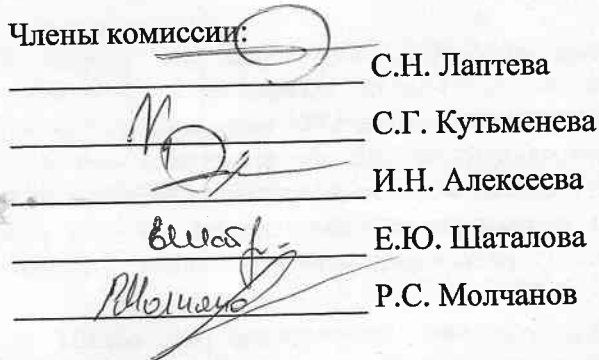 Члены комиссии:
С.Н. Лаптева
С.Г. Кутьменева
И.Н. Алексеева
Е.Ю. Шаталова
Р.С. Молчанов